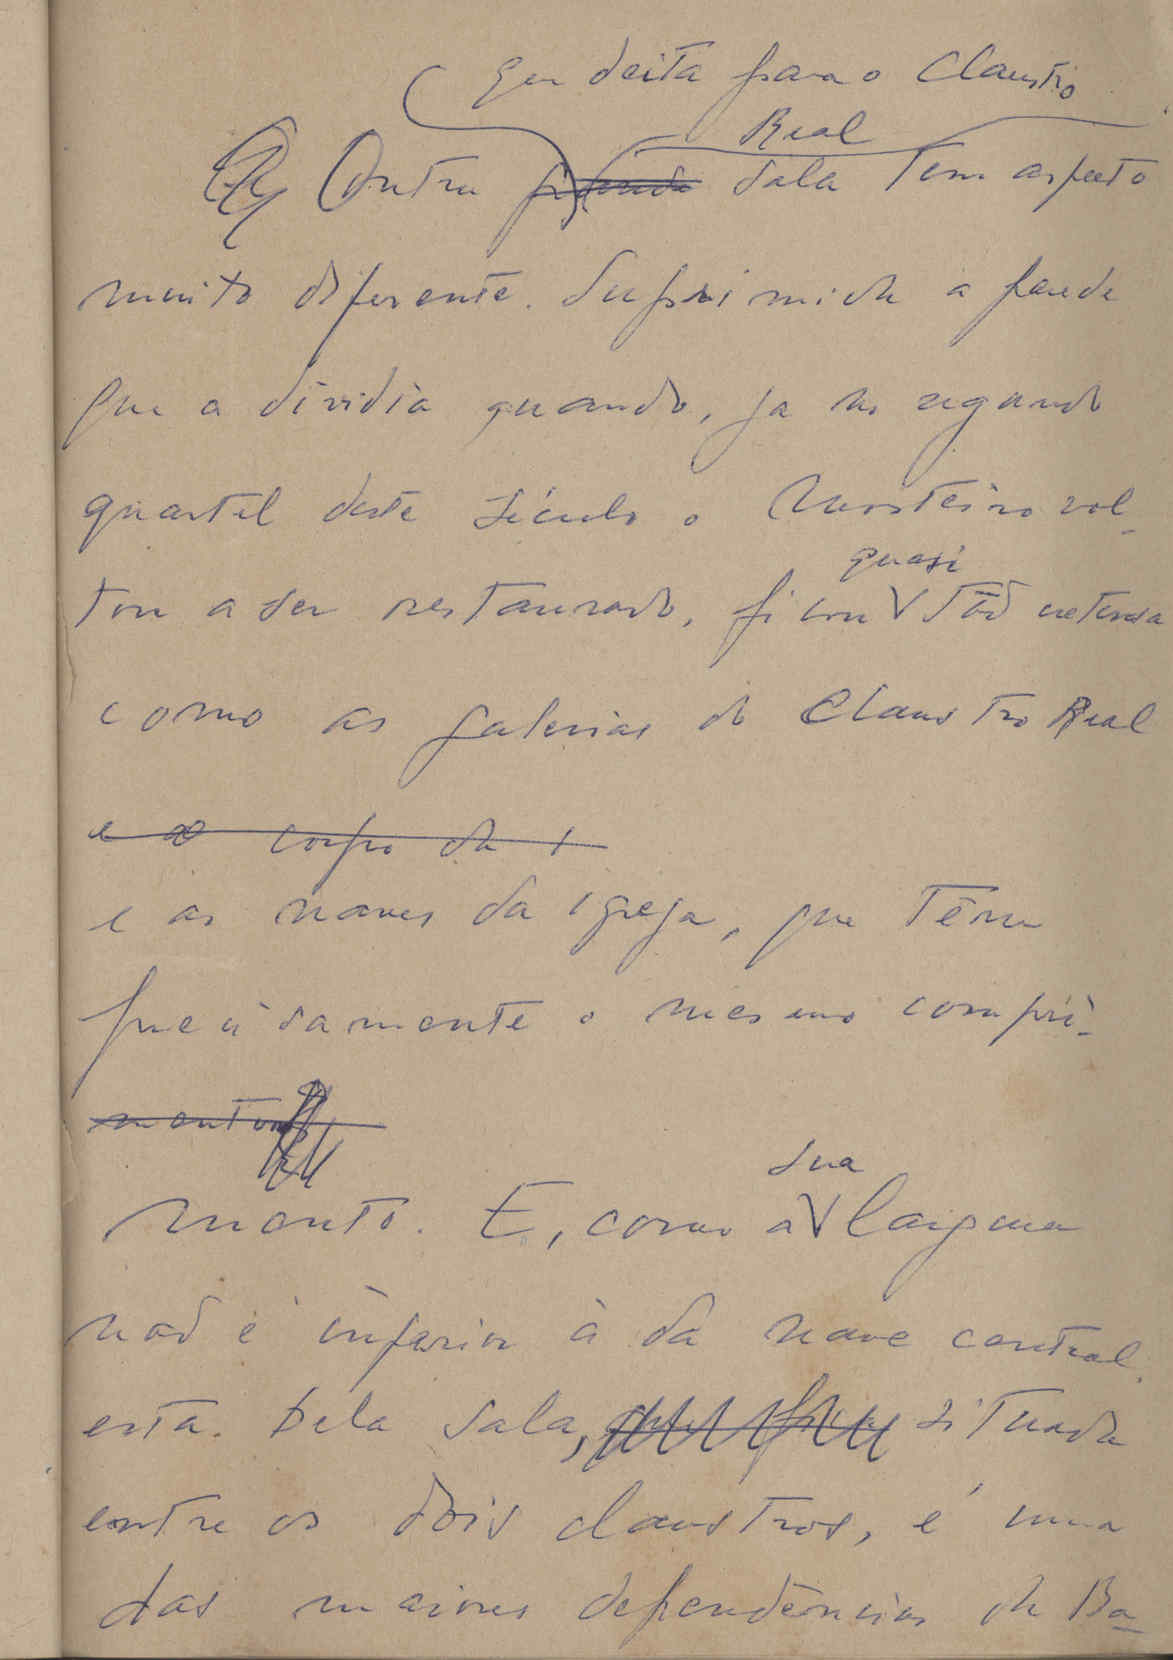 que deita para o Claustro
Real
Outra grande sala tem aspecto
muito diferente. Suprimida a parede
que a dividia quando, ja no segundo
quartel deste século o Mosteiro vol-
quasi
tou a ser restaurado, ficou tão extensa
como as galerias do Claustro Real
e o corpo da
e as naves da igreja, que têm
precisamente o mesmo compri-
mento
sua
mento. E, como a largura
não é inferior à da nave central,
esta bela sala, situada
entre os dois claustros, é uma
das maiores dependências da Ba-